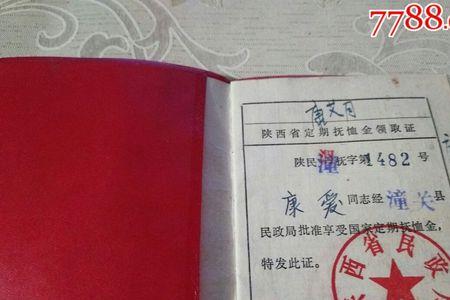 7788.c
康艾月
陕西省定期抚恤金领取证
陕民潼抚字第1482号
康爱同志经潼关县
民政局批准享受国家定期抚恤金，
特发此证。
西省民政